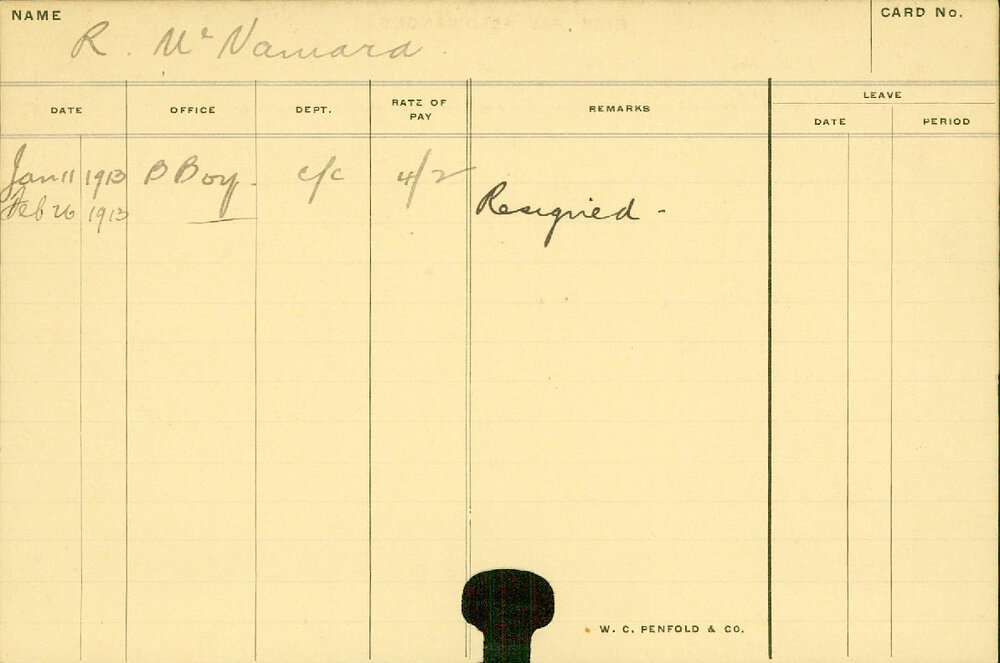 NAME
R. McNamara.
CARD No.
DATE
OFFICE
DEPT.
RATE OF PAY
REMARKS
LEAVE
DATE
PERIOD
Jan 11 1913 B Boy. c/c 4/2
Feb 26 1913 Resigned -
W. C. PENFOLD & CO.